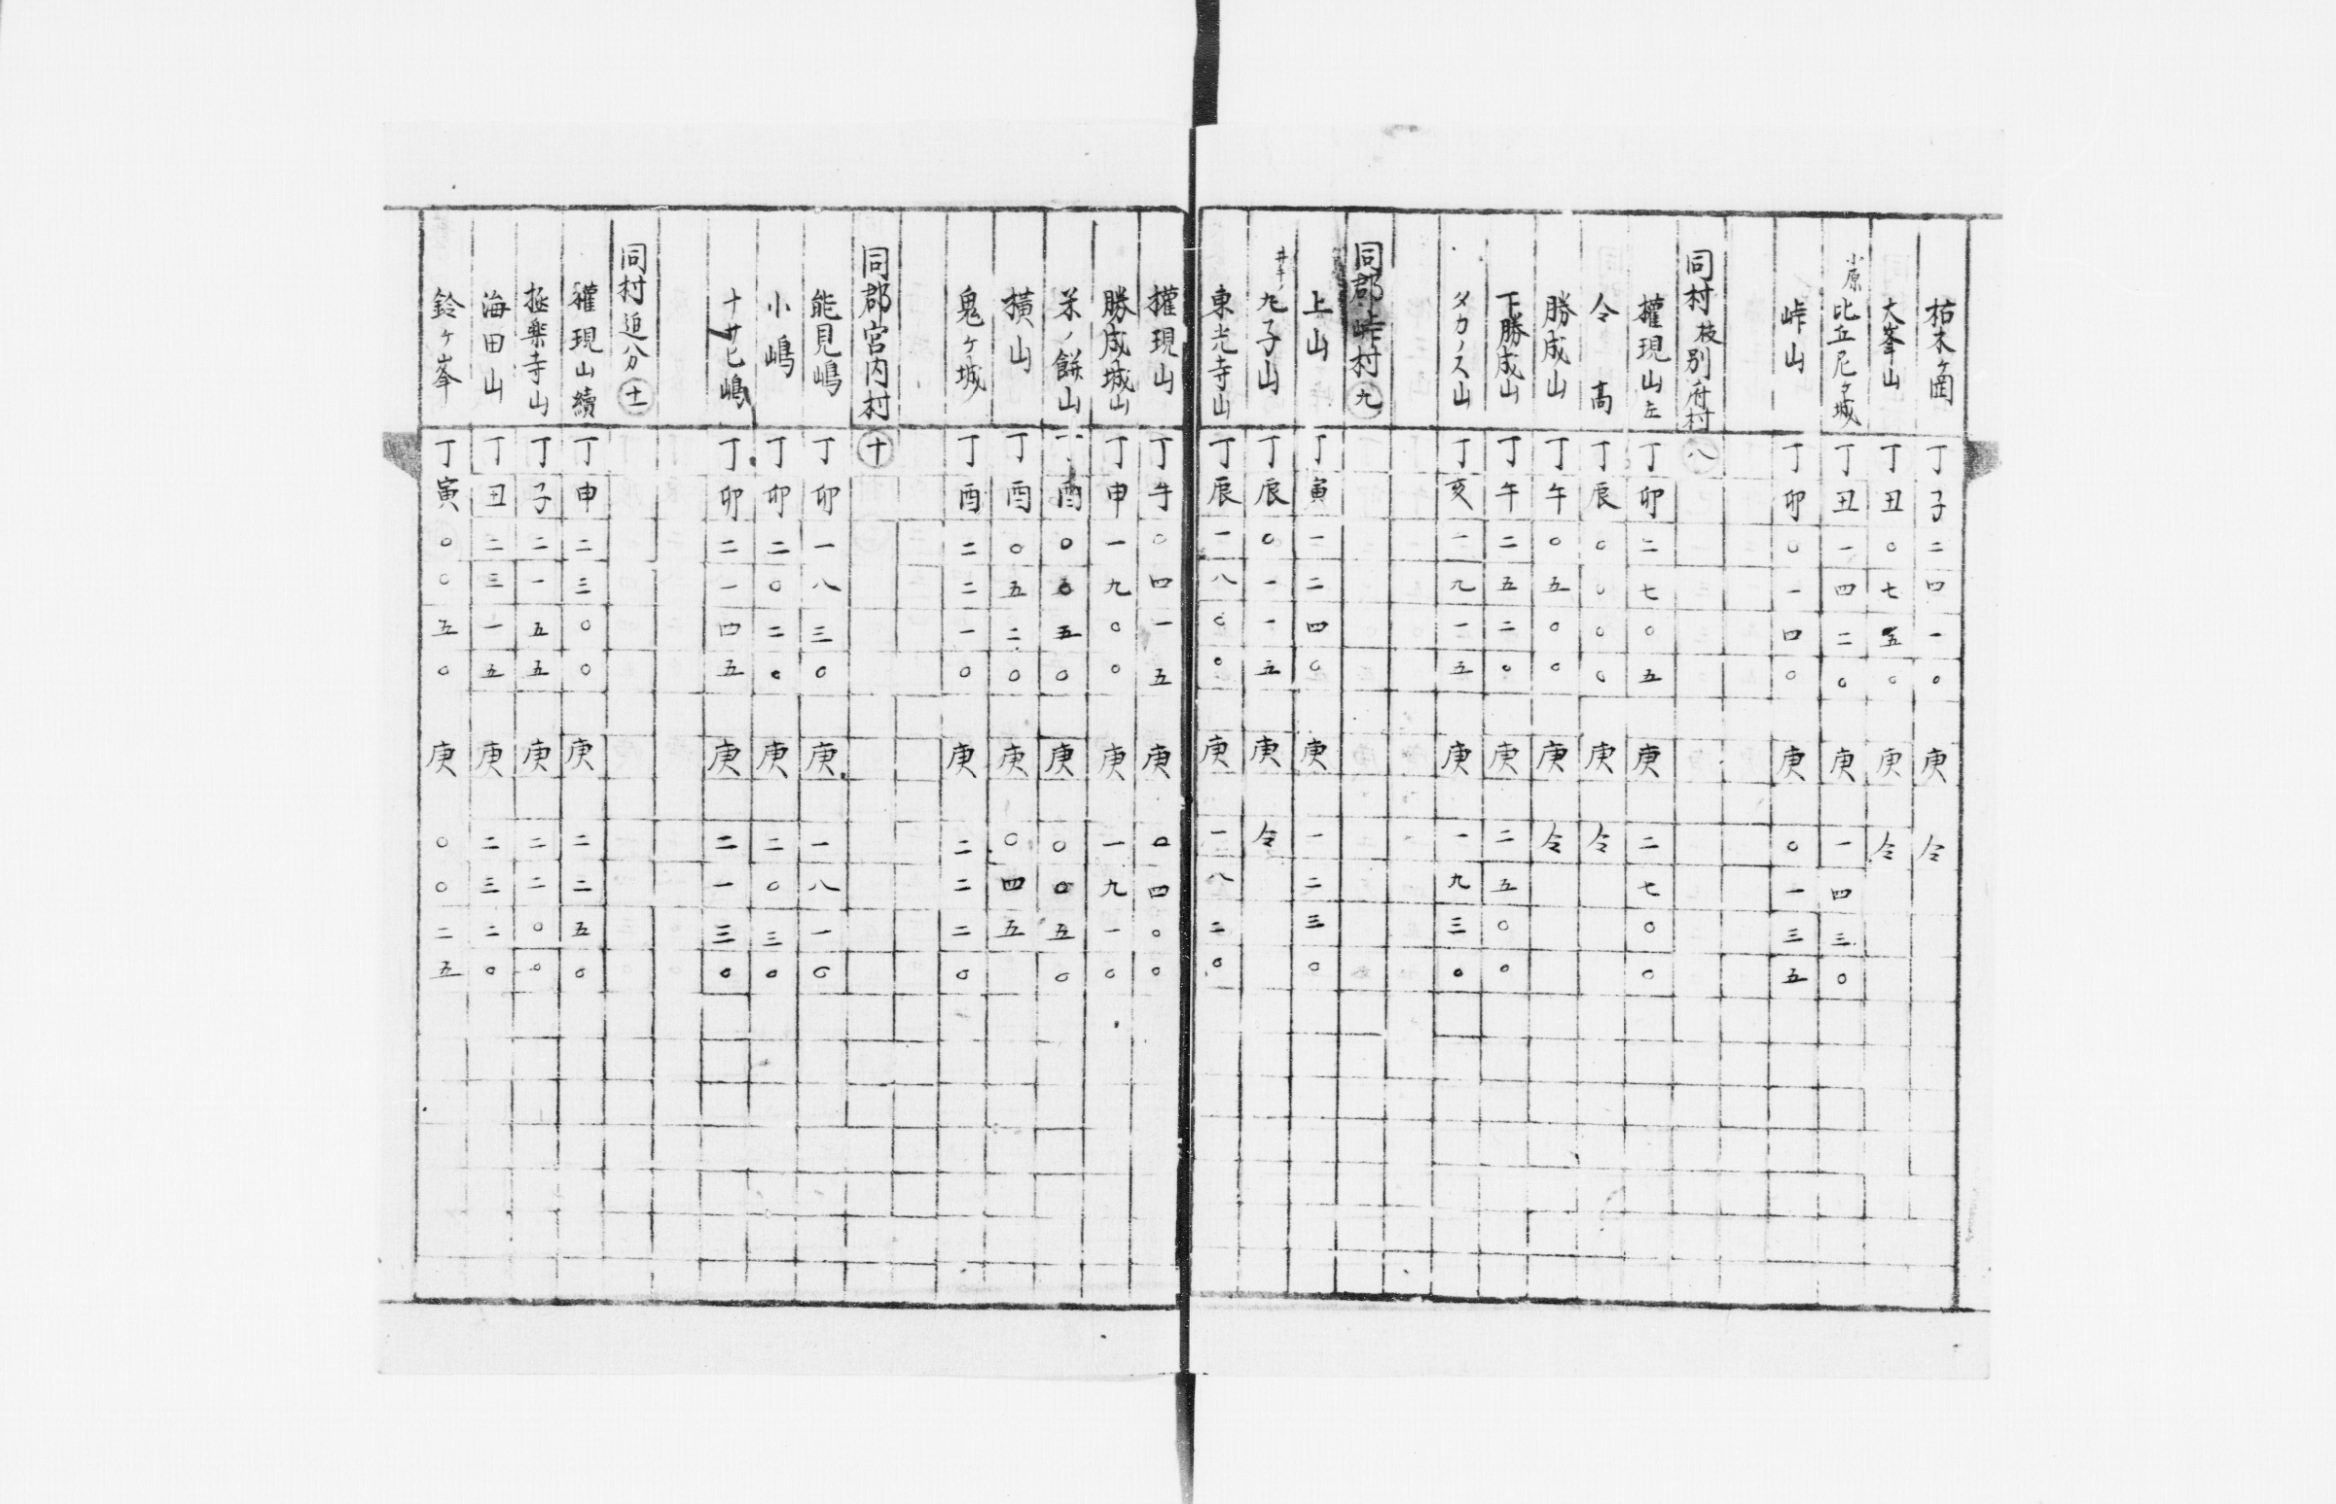 枯木ヶ岡 丁子二四一〇 庚 仝
大峯山 丁丑〇七五〇 庚 仝
小原 比丘尼ヶ城 丁丑一四二〇 庚 一四三〇
峠山 丁卯〇一四〇 庚 〇一三五
同村枝別府村 八
權現山左 丁卯二七〇五 庚 二七〇〇
仝 高 丁辰〇〇〇〇 庚 仝
勝成山 丁午〇五〇〇 庚 仝
下勝成山 丁午二五二〇 庚 二五〇〇
タカノス山 丁亥一九一五 庚 一九三〇
同郡峠村 九
上山 丁寅一二四〇 庚 一二三〇
井手ノ 丸子山 丁辰〇一一五 庚 仝
東光寺山 丁辰一八〇〇 庚 一八二〇
權現山 丁午〇四一五 庚 〇四〇〇
勝成城山 丁申一九〇〇 庚 一九一〇
ノ餅山 丁酉〇〇五〇 庚 〇〇五〇
横山 丁酉〇五二〇 庚 〇四五
鬼ヶ城 丁酉二二一〇 庚 二二二〇
同郡宮内村 十
能見嶋 丁卯一八三〇 庚 一八一〇
小嶋 丁卯二〇二〇 庚 二〇三〇
嶋 丁卯二一四五 庚 二一三〇
同村迫分 十一
權現山續 丁申二三〇〇 庚 二二五〇
極楽寺山 丁子二一五五 庚 二二〇〇
海田山 丁丑二三一五 庚 二三二〇
鈴ヶ峯 丁寅〇〇五〇 庚 〇〇二五